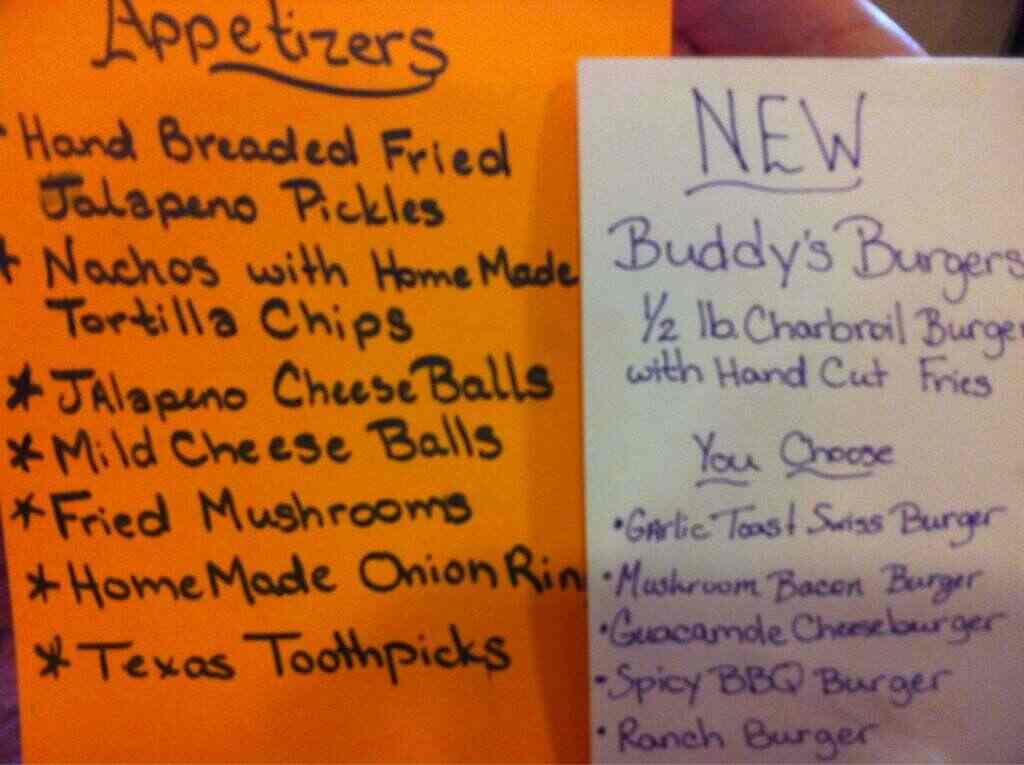 Appetizers
Hand Breaded Fried
Jalapeno Pickles
* Nachos with HomeMade
Tortilla Chips
* JAlapeno Cheese Balls
* Mild Cheese Balls
* Fried Mushrooms
* HomeMade Onion Rin
* Texas Toothpicks
NEW
Buddy's Burgers
1/2 lb. Charbroil Burge
with Hand Cut Fries
You Choose
•GArlic Toast Swiss Burger
•Mushroom Bacon Burger
•Guacamole Cheeseburger
•Spicy BBQ Burger
•Ranch Burger